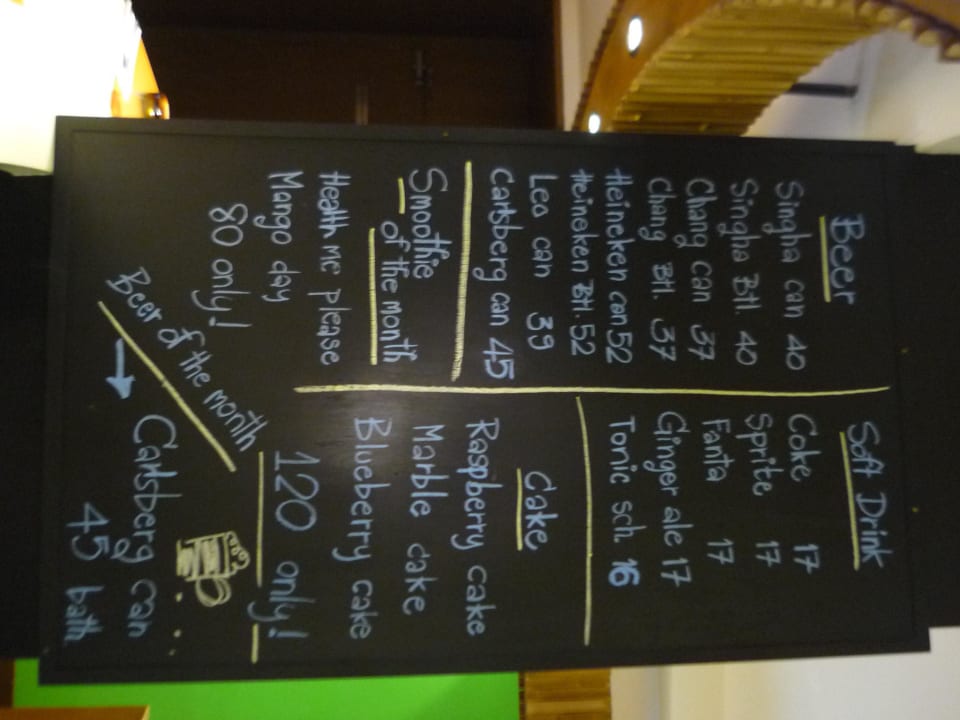 Beer
Singha can 40
Singha Btl. 40
Chang can 37
Chang Btl. 37
Heineken can 52
Heineken Btl. 52
Leo can 39
Carlsberg can 45
Smoothie
of the month
Health me please
Mango day
80 only!
Soft Drink
Coke 17
Sprite 17
Fanta 17
Ginger ale 17
Tonic sch 16
Cake
Raspberry cake
Marble cake
Blueberry cake
120 only!
Beer of the month
Carlsberg can
45 bath